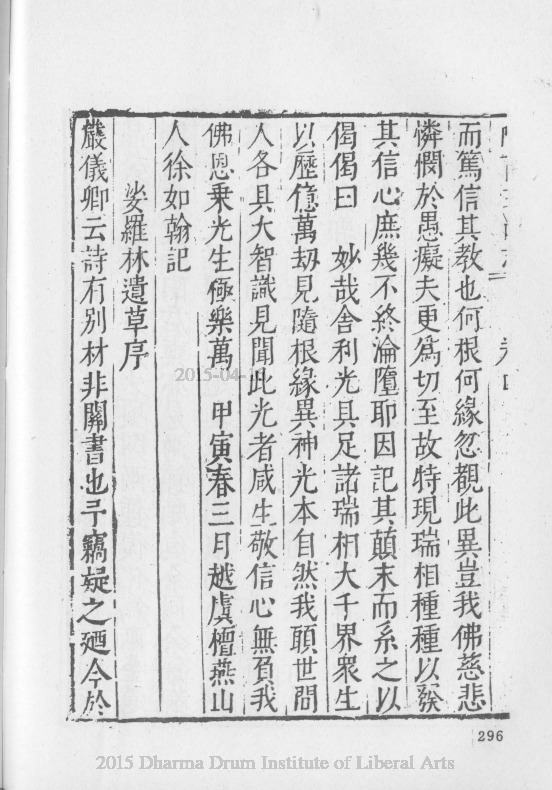 而篤信其教也何根何緣忽觀此異豈我佛慈悲
憐憫於愚癡夫更為切至故特現瑞相種種以發
其信心庶幾不終淪墮耶因記其顛末而系之以
偈偈曰 妙哉舍利光具足諸瑞相大千界眾生
以歷億萬刧見隨根緣異神光本自然我願世間
人各具大智識見聞此光者咸生敬信心無負我
佛恩乗光生極樂萬 甲寅春三月越虞檀燕山
人徐如翰記
娑羅林遺草序
嚴儀卿云詩有別材非關書也予竊疑之廼今於
2015-04-1
296
2015 Dharma Drum Institute of Liberal Arts